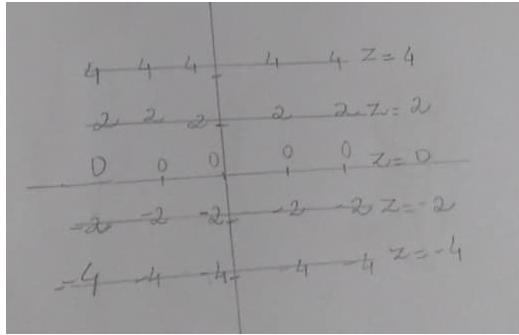 4 4 4 4 4 z = 4
2 2 2 2 2 z = 2
0 0 0 0 0 z = 0
-2 -2 -2 -2 -2 z = -2
-4 -4 -4 -4 -4 z = -4